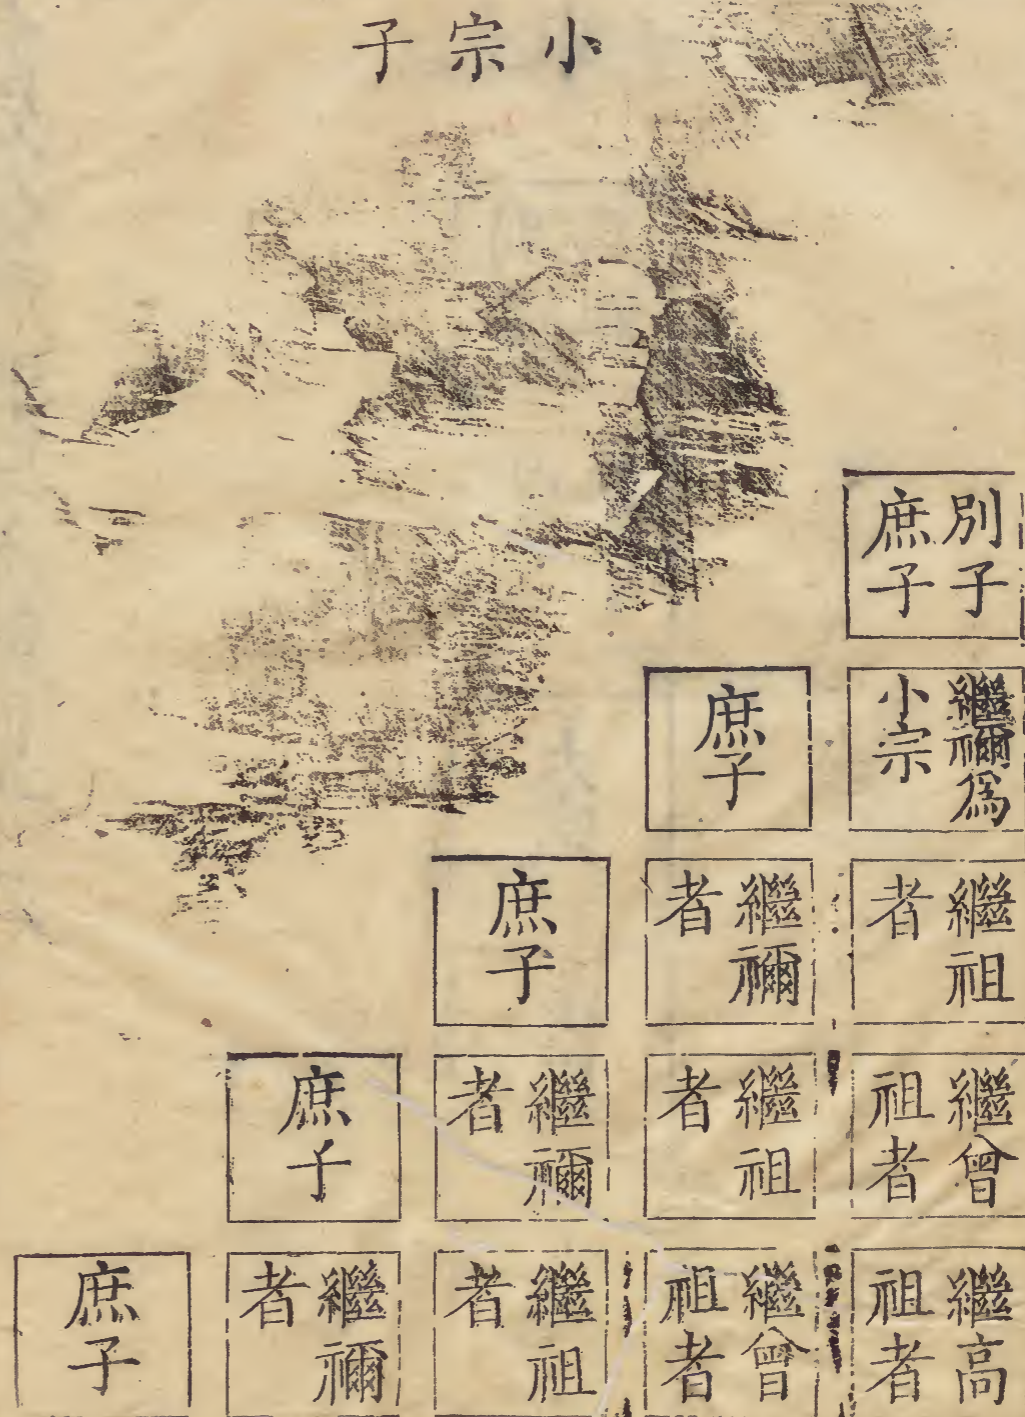 小宗子
別子
庶子
繼禰爲
小宗
庶子
繼祖
者
繼禰
者
庶子
繼曾
祖者
繼祖
者
繼禰
者
庶子
繼高
祖者
繼曾
祖者
繼祖
者
繼禰
者
庶子